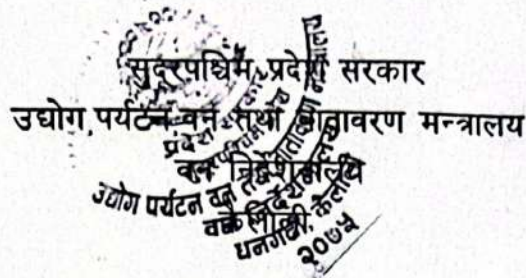 सुदूरपश्चिम प्रदेश सरकार
उद्योग,पर्यटन,वन तथा वातावरण मन्त्रालय
वन निर्देशनालय
प्रदेश सरकार
उद्योग पर्यटन वन तथा वातावरण मन्त्रालय
वन निर्देशनालय
धनगढी, कैलाली
२०७५